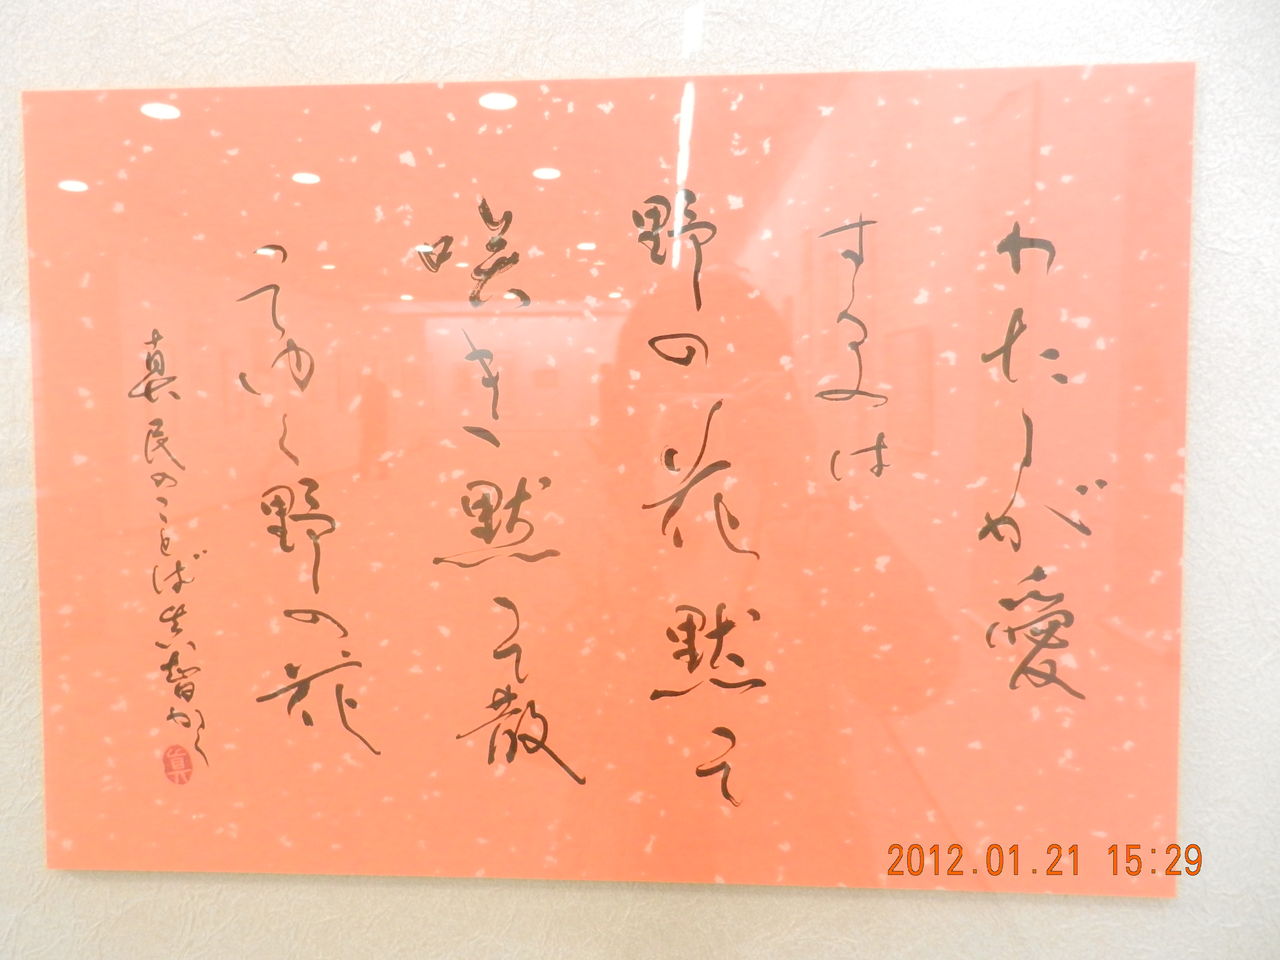 わたしが愛
するは
野の花黙て
咲き黙て散
ってゆく野の花
真民のことば真智かく
真
2012.01.21 15:29